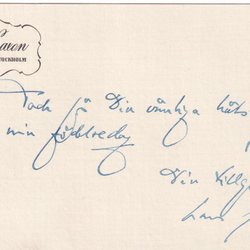 aron
STOCKHOLM
Tack för Din vänliga häls
min födelsedag
Din tillg
Lars